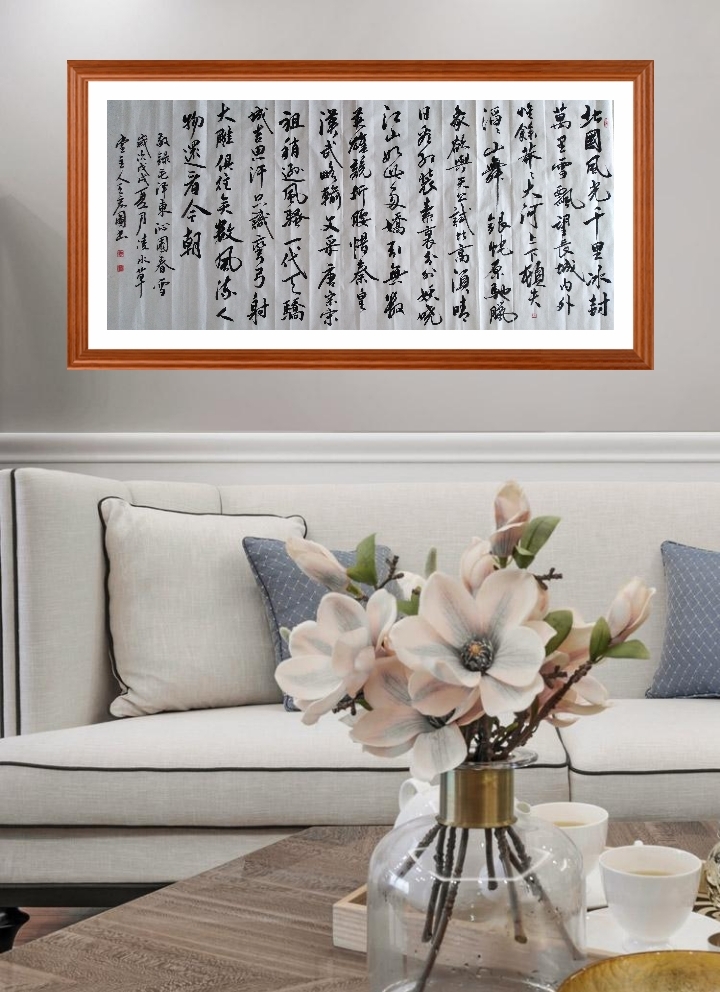 北國風光千里冰封
萬里雪飄望長城內外
惟餘莽々大河上下頓失
滔々山舞銀蛇原馳臘
象欲與天公試比高須晴
日看紅裝素裹分外妖嬈
江山如此多嬌引無數
英雄競折腰惜秦皇
漢武略輸文采唐宗宋
祖稍遜風騷一代天驕
成吉思汗只識彎弓射
大雕俱往矣數風流人
物還看今朝
敬錄毛澤東沁園春雪
歲次戊戌夏月清水草
堂主人王國書